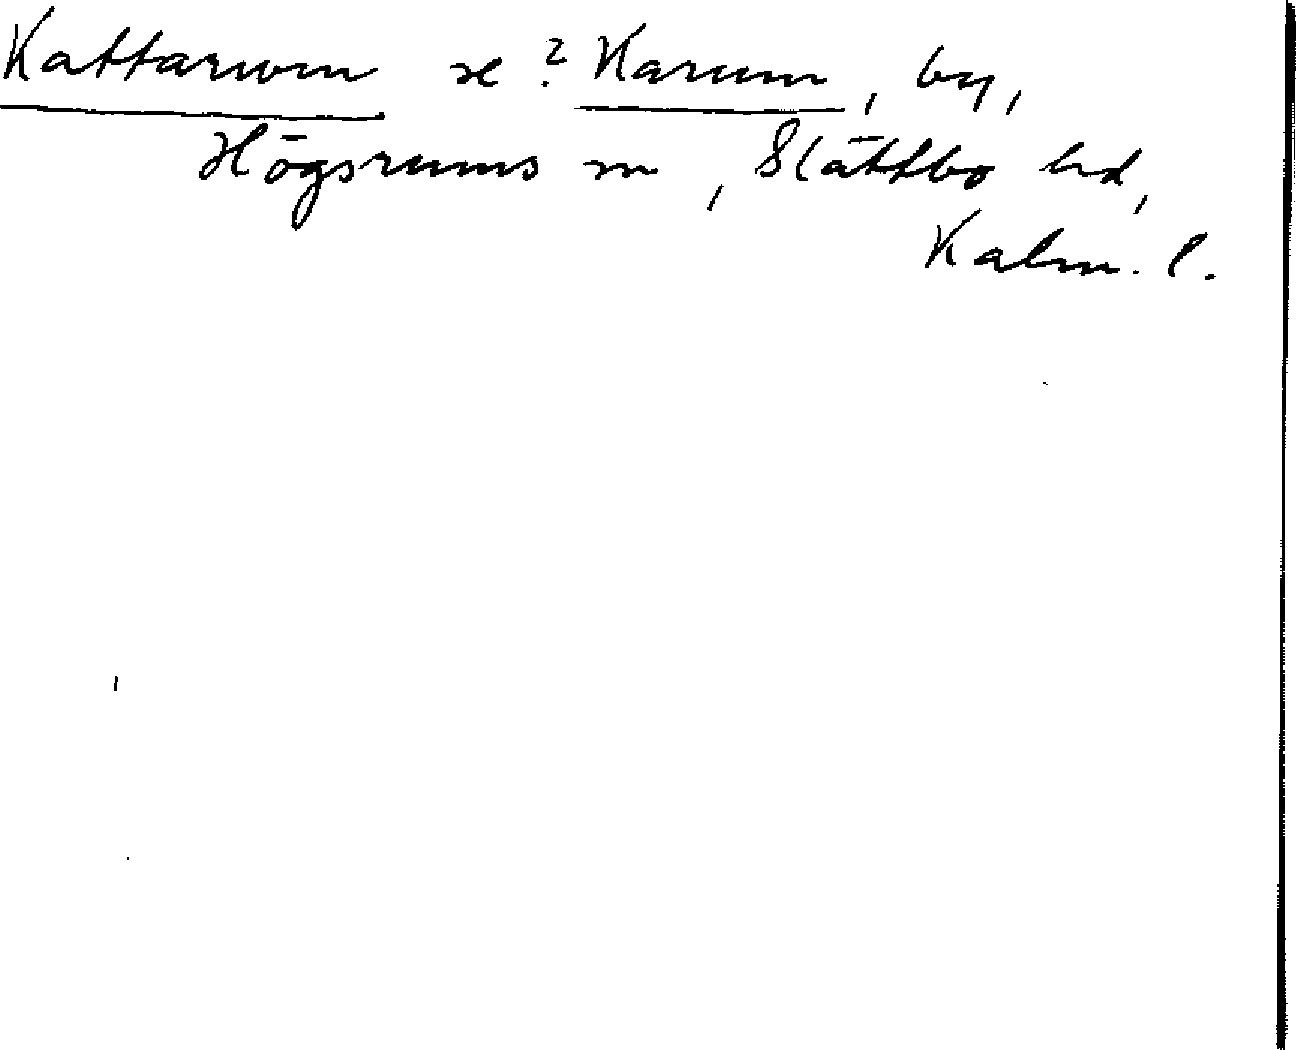 Kattarum se ? Karum, by,
Högsrums sn, Slättbo hd,
Kalm. l.